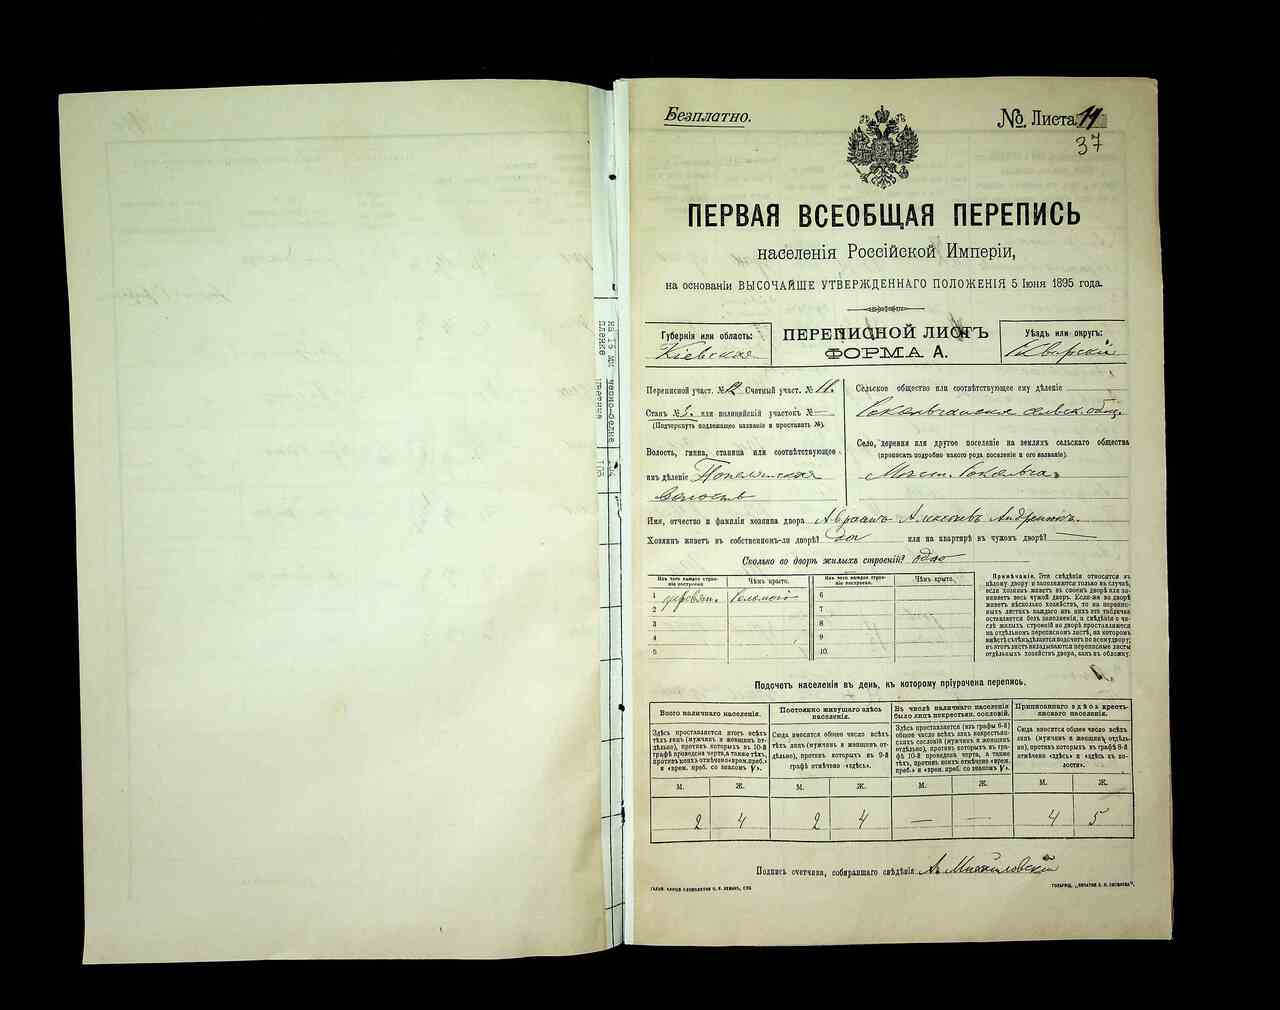 Безплатно.
№ Листа 11
37
ПЕРВАЯ ВСЕОБЩАЯ ПЕРЕПИСЬ
населенія Россійской Имперіи,
на основаніи ВЫСОЧАЙШЕ УТВЕРЖДЕННАГО ПОЛОЖЕНІЯ 5 Іюня 1895 года.
Губернія или область:
Кіевская
ПЕРЕПИСНОЙ ЛИСТЪ
ФОРМА А.
Уѣздъ или округъ:
Сквирскій
Переписной участ. № 12 Счетный участ. № 11.
Станъ № 3. или полицейскій участокъ № —
(Подчеркнуть подлежащее названіе и проставить №).
Волость, гмина, станица или соотвѣтствующее
имъ дѣленіе
волость
Сельское общество или соотвѣтствующее ему дѣленіе
сельск. общ.
Село, деревня или другое поселеніе на земляхъ сельскаго общества
(прописать подробно какого рода поселеніе и его названіе).
Мѣст.
Имя, отчество и фамилія хозяина двора Авраамъ Алексѣевъ
Хозяинъ живетъ въ собственномъ-ли дворѣ? да или на квартирѣ въ чужомъ дворѣ? —
Сколько во дворѣ жилыхъ строеній? одно
Изъ чего каждое строеніе построено. Чѣмъ крыто. Изъ чего каждое строеніе построено. Чѣмъ крыто.
1 деревян. Соломою 6
2 7
3 8
4 9
5 10.
Примѣчаніе. Эти свѣдѣнія относятся къ
цѣлому двору и заполняются только въ случаѣ,
если хозяинъ живетъ въ своемъ дворѣ или занимаетъ
весь чужой дворъ. Если-же во дворѣ
живетъ нѣсколько хозяйствъ, то на переписныхъ
листахъ каждаго изъ нихъ эта табличка
оставляется безъ заполненія, а свѣдѣнія о числѣ
жилыхъ строеній во дворѣ проставляются
на отдѣльномъ переписномъ листѣ, на которомъ
вмѣстѣ съ тѣмъ дѣлается подсчетъ по всему двору;
въ этотъ листъ вкладываются переписные листы
отдѣльныхъ хозяйствъ двора, какъ въ обложку.
Подсчетъ населенія въ день, къ которому пріурочена перепись.
Всего наличнаго населенія.
Здѣсь проставляется итогъ всѣхъ
тѣхъ лицъ (мужчинъ и женщинъ отдѣльно),
противъ которыхъ въ 10-й
графѣ проведена черта, а также тѣхъ,
противъ коихъ отмѣчено «врем. преб.»
и «врем. преб. со знакомъ V».
Постоянно живущаго здѣсь населенія.
Сюда вносится общее число всѣхъ
тѣхъ лицъ (мужчинъ и женщинъ отдѣльно),
противъ которыхъ въ 9-й
графѣ отмѣчено «здѣсь».
Въ числѣ наличнаго населенія было лицъ некрестьян. сословій.
Здѣсь проставляется (изъ графы 6-й)
общее число всѣхъ лицъ некрестьянскихъ
сословій (мужчинъ и женщинъ
отдѣльно), противъ которыхъ въ графѣ
10-й проведена черта, а также
тѣхъ, противъ коихъ отмѣчено «врем.
преб.» и «врем. преб. со знакомъ V».
Приписаннаго здѣсь крестьянскаго населенія.
Сюда вносится общее число всѣхъ
лицъ (мужчинъ и женщинъ отдѣльно),
противъ которыхъ въ графѣ 8-й
отмѣчено «здѣсь» и «здѣсь къ волости».
М. Ж. М. Ж. М. Ж. М. Ж.
2 4 2 4 — — 4 5
Подпись счетчика, собиравшаго свѣдѣнія А. Михайловскій